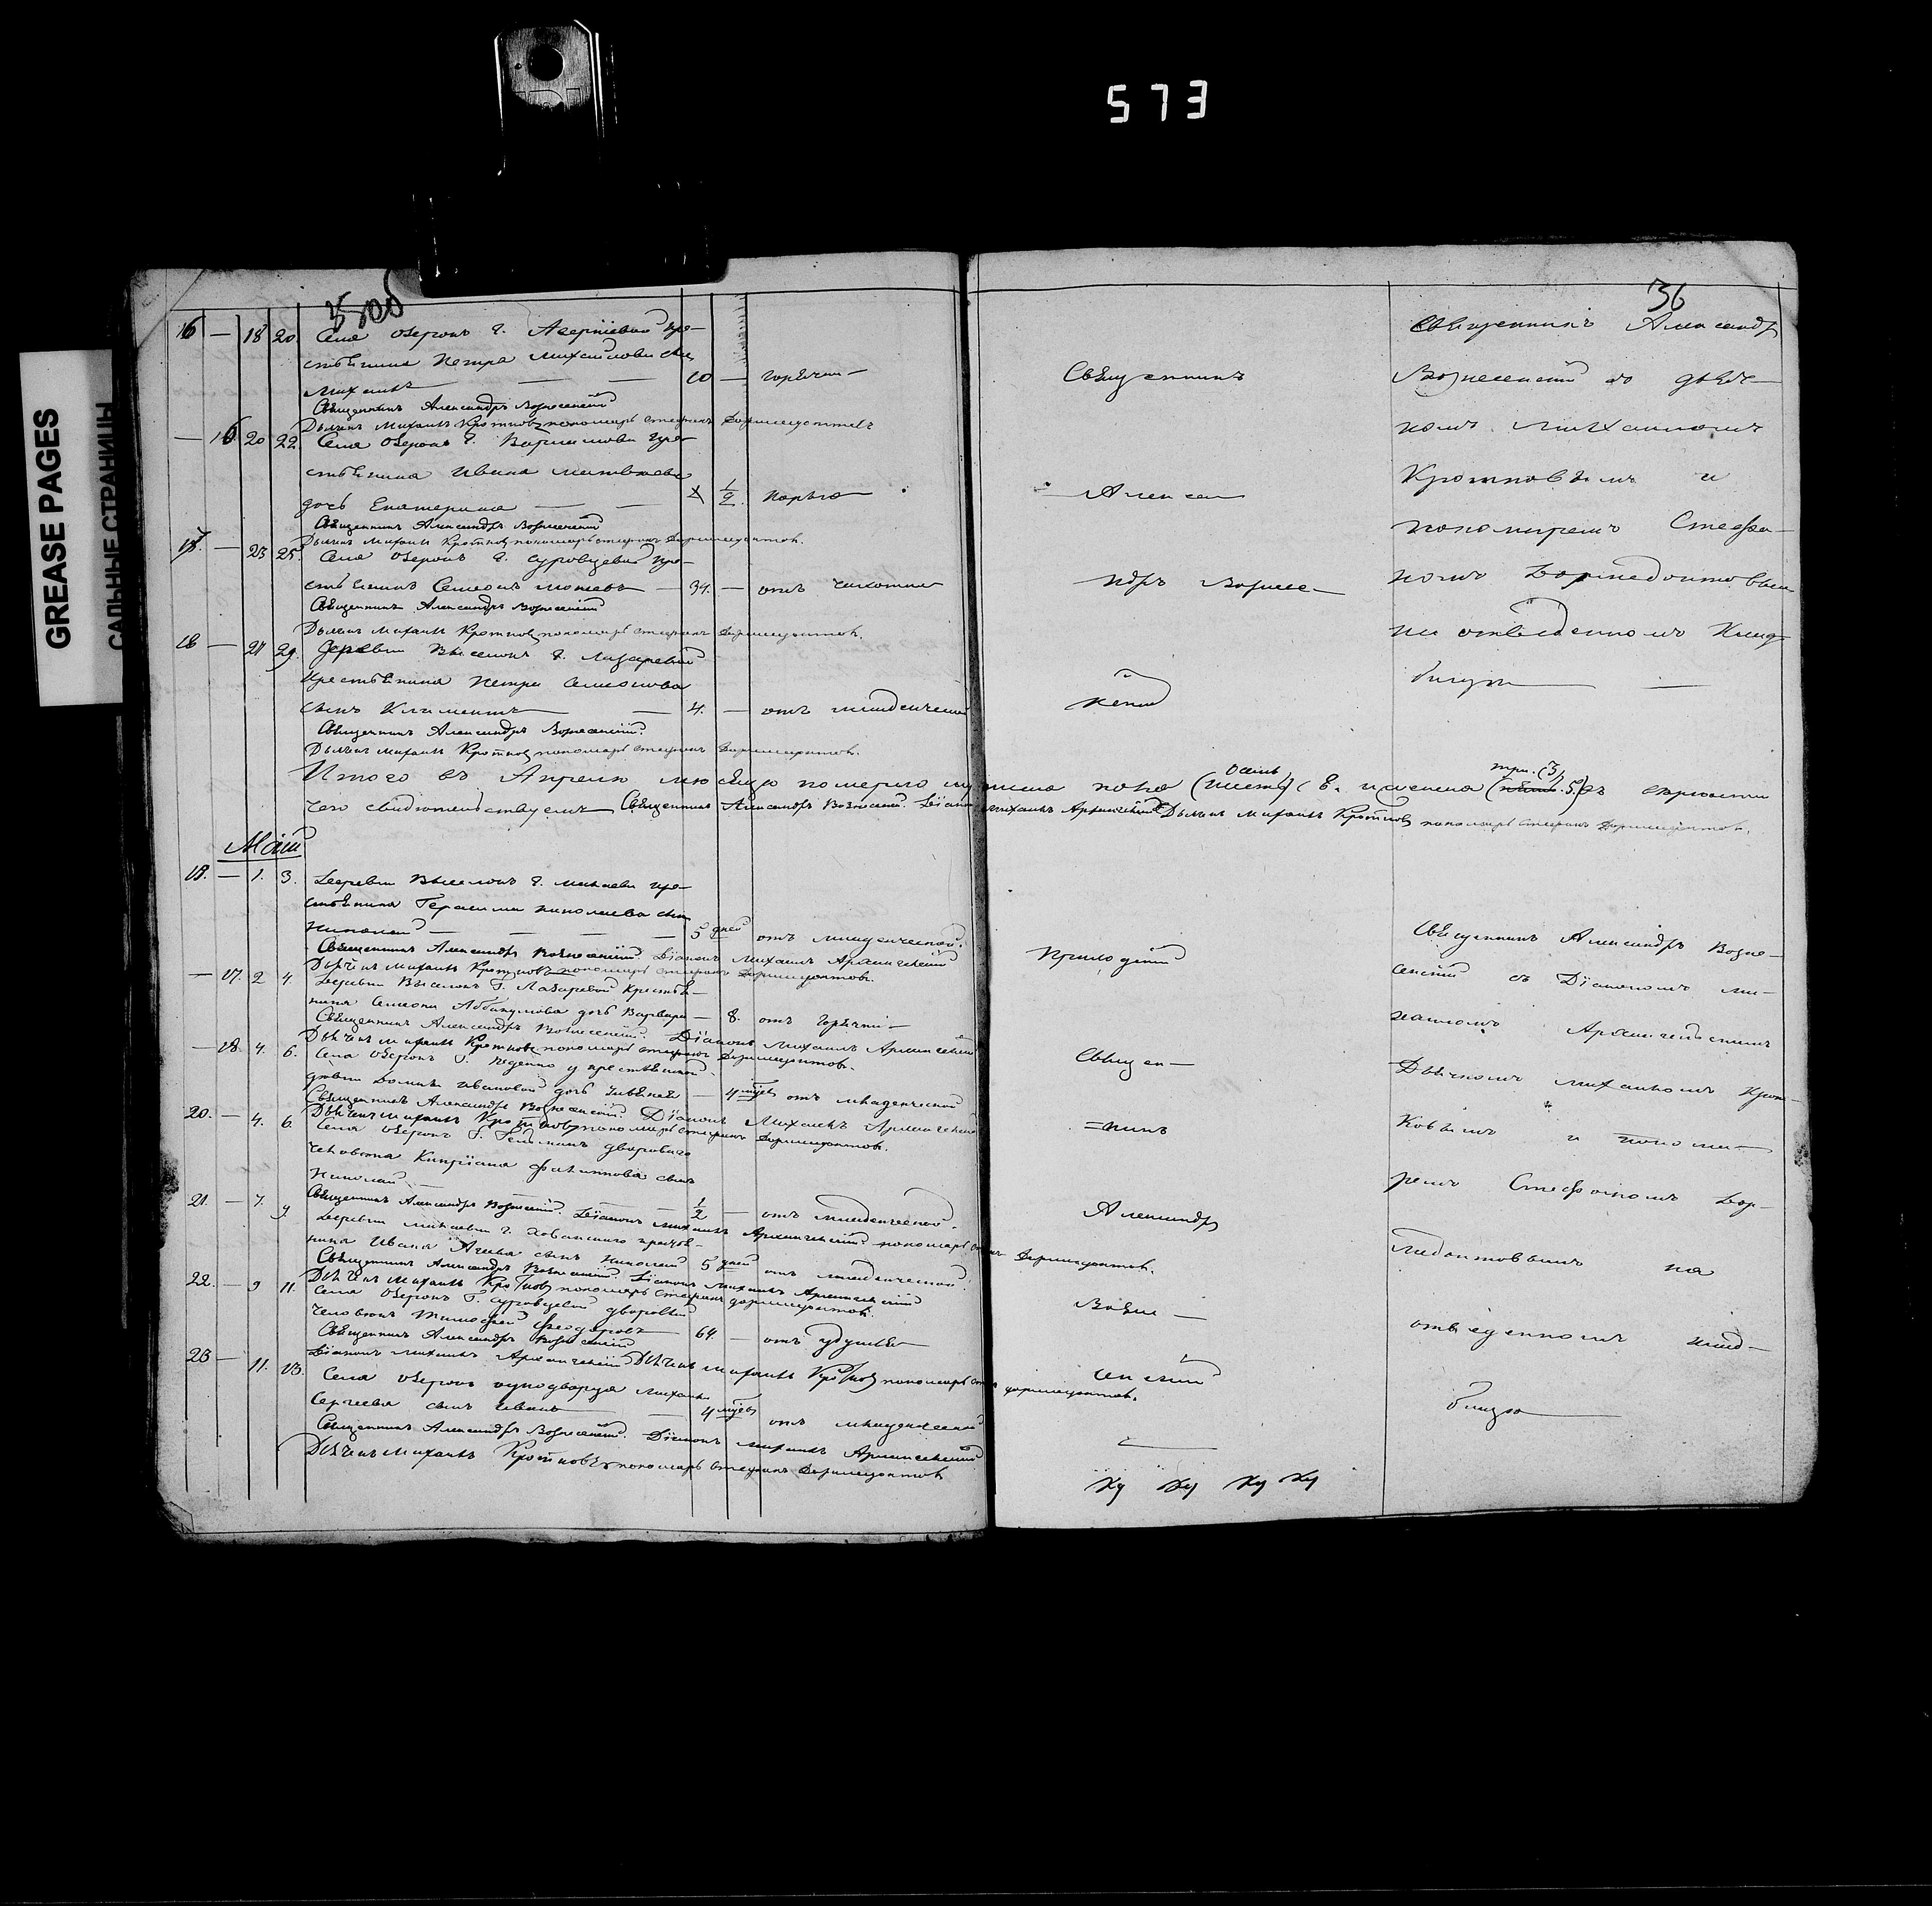 573
GREASE PAGES
САЛЬНЫЕ СТРАНИЦЫ
35 об
16 — 18 20 Села Озерокъ Г. Авериевой кре-
стьянина Петра Михайлова сынъ
Михаилъ — — — 10 — горячки
Священникъ Александръ Вознесенский
Дьячекъ Михаилъ Кротковъ пономарь Стефанъ Дормедонтовъ
— 16 20 22 Села Озерокъ Г. кре-
стьянина Ивана Матвеева
дочь Екатерина — — 1/2
Священникъ Александръ Вознесенский
Дьячекъ Михаилъ Кротковъ пономарь Стефанъ Дормедонтовъ.
17. — 23 25. Села Озерокъ Г. Суровцевой кре-
стьянинъ Семенъ — 34. — отъ чахотки
Священникъ Александръ Вознесенский
Дьячекъ Михаилъ Кротковъ пономарь Стефанъ Дормедонтовъ.
18 — 27 29. Деревни Выселокъ Г. Лазаревой
крестьянина Петра Семенова
сынъ Климентъ — — 4. — отъ младенческой
Священникъ Александръ Вознесенский.
Дьячекъ Михаилъ Кротковъ пономарь Стефанъ Дормедонтовъ.
Итого въ Апреле месяце померло мужеска пола восемь (8. и женска три. (3) въ верности
чего свидетельствуемъ Священникъ Александръ Вознесенский. Діаконъ Михаилъ Архангельский Дьячекъ Михаилъ Кротковъ пономарь Стефанъ Дормедонтовъ.
Май
19. — 1. 3. Деревни Выселокъ Г. кре-
стьянина Герасима Николаева сынъ
Николай — — — — 5 дней отъ младенческой.
Священникъ Александръ Вознесенский. Діаконъ Михаилъ Архангельский
Дьячекъ Михаилъ Кротковъ пономарь Стефанъ Дормедонтовъ.
— 17. 2 4. Деревни Выселокъ Г. Лазаревой крестья-
нина Семена Аввакумова дочь Варвара — 8. отъ горячки
Священникъ Александръ Вознесенский. Діаконъ Михаилъ Архангельский
Дьячекъ Михаилъ Кротковъ пономарь Стефанъ Дормедонтовъ.
— 18. 4. 6. Села Озерокъ Г. у крестьянской
девки Ивановой дочь — 4 месяц отъ младенческой
Священникъ Александръ Вознесенский. Діаконъ Михаилъ Архангельский
Дьячекъ Михаилъ Кротковъ пономарь Стефанъ Дормедонтовъ.
20. — 4. 6. Села Озерокъ Г. двороваго
человека Кипріана Филиппова сынъ
Николай — — 1/2 — отъ младенческой.
Священникъ Александръ Вознесенский. Діаконъ Михаилъ Архангельский пономарь Дормедонтовъ.
21. — 7. 9. Деревни Г. Хованскаго крестья-
нина Ивана сынъ Николай 5 дней отъ младенческой.
Священникъ Александръ Вознесенский. Діаконъ Михаилъ Архангельский
Дьячекъ Михаилъ Кротковъ пономарь Стефанъ Дормедонтовъ.
22. — 9 11. Села Озерокъ Г. Суровцевой дворовый
человекъ Тимофей Феодоровъ — 64 — отъ удушья
Священникъ Александръ Вознесенский
Діаконъ Михаилъ Архангельский Дьячекъ Михаилъ Кротковъ пономарь Дормедонтовъ.
23 — 11. 13. Села Озерокъ однодворца Михаила
Сергеева сынъ Иванъ — 4 месяц отъ младенческой
Священникъ Александръ Вознесенский. Діаконъ Михаилъ Архангельский
Дьячекъ Михаилъ Кротковъ пономарь Стефанъ Дормедонтовъ
36
Священникъ
Алексан
ндръ Возне-
сенский
Приходский
Священ-
=никъ
Александръ
Возне-
сенский
Священникъ Александръ
Вознесенский со дьяч-
комъ Михаиломъ
Кротковымъ и
пономаремъ Стефа-
номъ Дормедонтовымъ
на отведенномъ клад-
бищѣ —
Священникъ Александръ Возне-
сенский съ Діакономъ Ми-
хаиломъ Архангельскимъ
Дьячкомъ Михаиломъ Крот-
ковымъ и понома-
ремъ Стефаномъ Дор-
медонтовымъ на
отведенномъ клад-
бищѣ